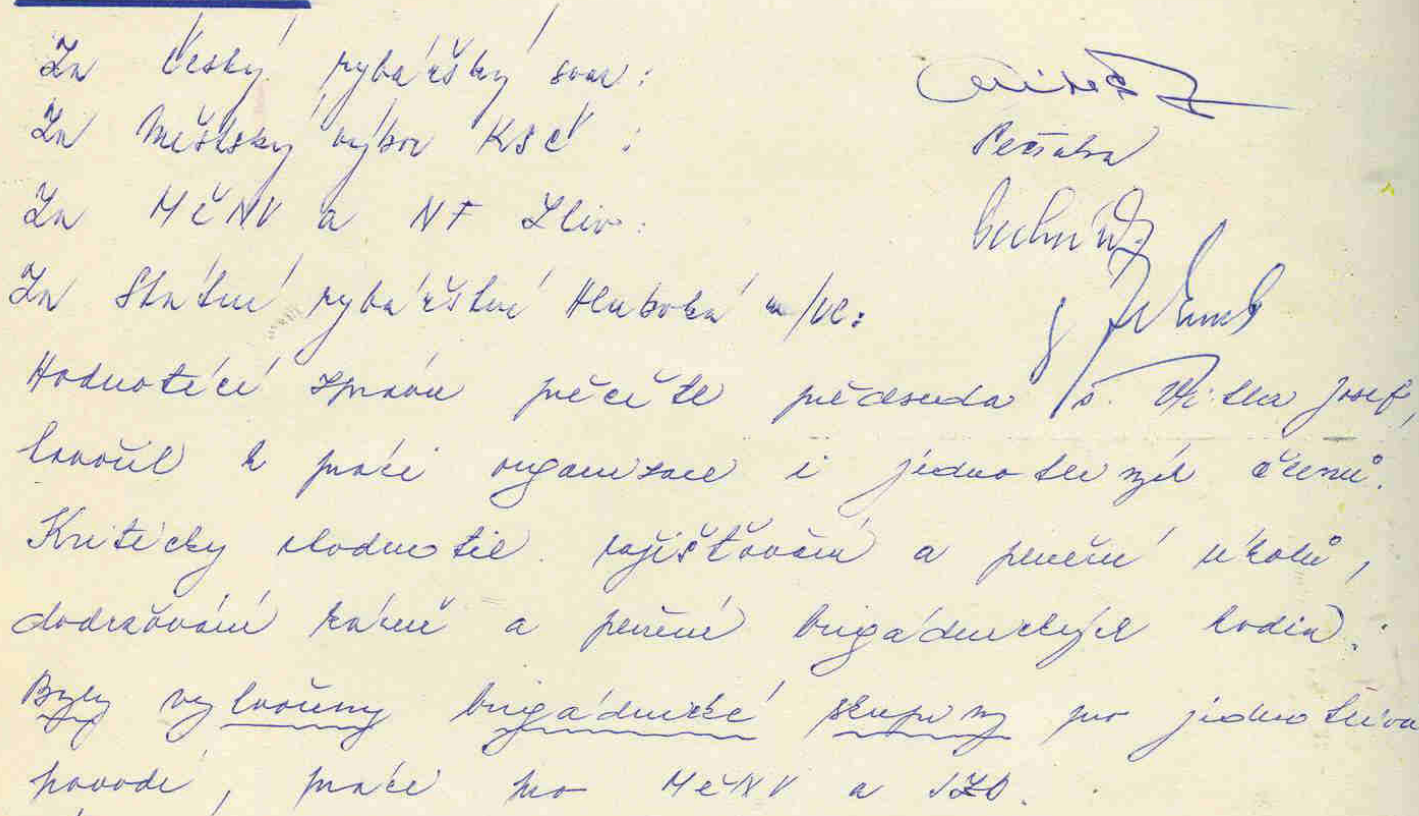 Za Český rybářský svaz:
Za Městský výbor KSČ:
Za MěNV a NF Zliv:
Za Státní rybářství Hluboká n/Vl:
Hodnotící zprávu přečetl předseda s. Josef,
hovořil k práci organizace i jednotlivých členů.
Kriticky hodnotil zajišťování a plnění úkolů,
dodržování kázně a plnění brigádnických hodin.
Byly vytvořeny brigádnické skupiny pro jednotlivá
povodí, práce pro MěNV a JZD.